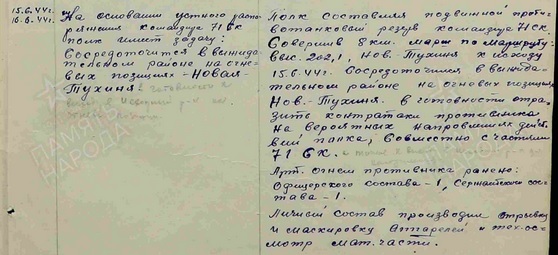 15.6.44г.
16.6.44г.
На основании устного распо-
ряжения командира 71 Ск
полк имеет задачу:
Сосредоточится в выжида-
тельном районе на огне-
вых позициях - Новая-
Тухиня
Полк составляя подвижной проти-
вотанковый резерв командира 71 СК.
Совершив 8 км. марш по маршруту:
выс. 202,1, Нов. Тухиня к исходу
15.6.44г. Сосредоточился в выжида-
тельном районе на огневых позициях
Нов.-Тухиня. в готовности отра-
зить контратаки противника
на вероятных направлениях дейст-
вий танка, совместно с частями
71 СК.
Арт. огнем противника ранено:
Офицерского состава - 1, Сержантского сос-
тава - 1.
Личный состав производил отрывку
и маскировку Батарей и тех. ос-
мотр мат. части.
ПАМЯТЬ
НАРОДА
ПАМЯТЬ
НАРОДА